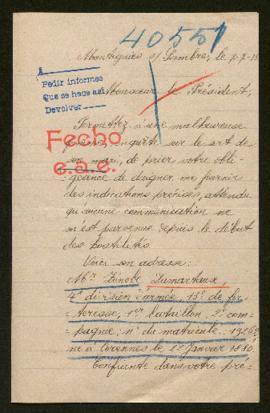 40551
Montignies s/ Sambre, le 7-7-15
Pedir informes
Que se hace así
Devolver
Monsieur le Président,
Permettez à une malheureuse
inquiète sur le sort de
Fecho
e.a.e.
son mari, de prier votre obli-
geance de daigner me fournir
les indications précises, attendu
qu'aucune communication ne
m'est parvenue depuis le début
des hostilités.
Voici son adresse:
Mr Zénobe Lamarteaux,
4e division d'armée, 13e de for-
teresse, 1er bataillon, 2e com-
pagnie; no de matricule:
né à Cerennes le 1er Janvier
Confiante dans votre pré-